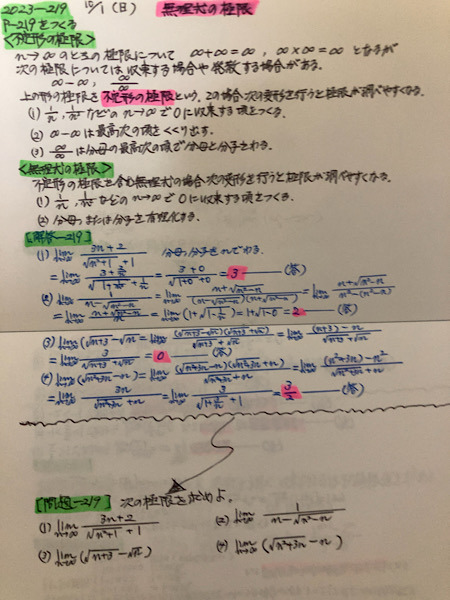 2023-219 10/1 (日) 無理式の極限
P-219をつくる
<不定形の極限>
n→∞のときの極限について ∞+∞=∞, ∞×∞=∞ となるが
次の極限については収束する場合や発散する場合がある。
∞-∞, ∞/∞
上の形の極限を不定形の極限という。この場合次の変形を行うと極限が調べやすくなる。
(1) 1/n, 1/n²などのn→∞で0に収束する項をつくる。
(2) ∞-∞は最高次の項をくくり出す。
(3) ∞/∞は分母の最高次の項で分母と分子をわる。
<無理式の極限>
不定形の極限を含む無理式の場合次の変形を行うと極限が調べやすくなる。
(1) 1/n, 1/n²などのn→∞で0に収束する項をつくる。
(2) 分母、または分子を有理化する。
[解答-219]
(1) lim n→∞ (3n+2)/(√(n²+1)+1) 分母、分子をnでわる。
= lim n→∞ (3+2/n)/(√(1+1/n²)+1/n) = (3+0)/(√(1+0)+0) = 3 (答)
(2) lim n→∞ 1/(n-√(n²-n)) = lim n→∞ (n+√(n²-n))/((n-√(n²-n))(n+√(n²-n))) = lim n→∞ (n+√(n²-n))/(n²-(n²-n))
= lim n→∞ (n+√(n²-n))/n = lim n→∞ (1+√(1-1/n)) = 1+√(1-0) = 2 (答)
(3) lim n→∞ (√(n+3)-√n) = lim n→∞ ((√(n+3)-√n)(√(n+3)+√n))/(√(n+3)+√n) = lim n→∞ ((n+3)-n)/(√(n+3)+√n)
= lim n→∞ 3/(√(n+3)+√n) = 0 (答)
(4) lim n→∞ (√(n²+3n)-n) = lim n→∞ ((√(n²+3n)-n)(√(n²+3n)+n))/(√(n²+3n)+n) = lim n→∞ ((n²+3n)-n²)/(√(n²+3n)+n)
= lim n→∞ 3n/(√(n²+3n)+n) = lim n→∞ 3/(√(1+3/n)+1) = 3/2 (答)
[問題-219] 次の極限を求めよ。
(1) lim n→∞ (3n+2)/(√(n²+1)+1) (2) lim n→∞ 1/(n-√(n²-n))
(3) lim n→∞ (√(n+3)-√n) (4) lim n→∞ (√(n²+3n)-n)